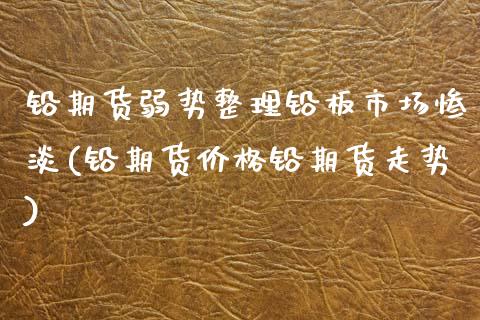 铅期货弱势整理铅板市场惨
淡(铅期货价格铅期货走势
)